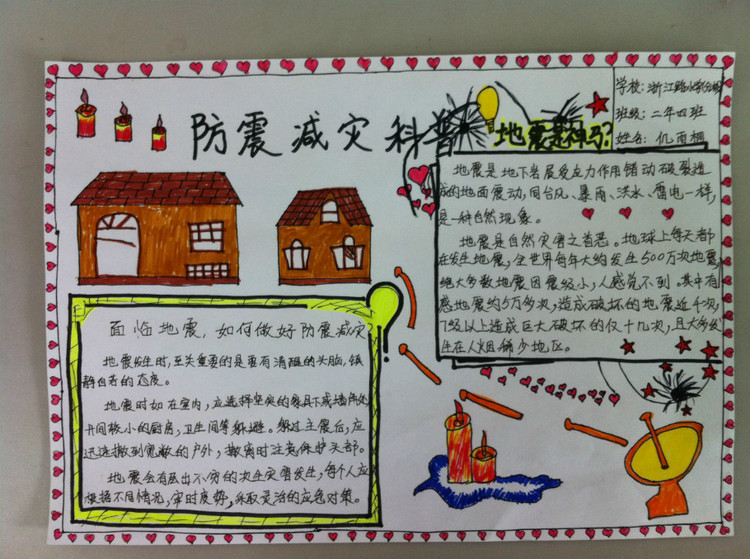 防震减灾科普
学校:浙江路小学分校
班级:二年四班
姓名:仉雨桐
地震是神马?
地震是地下岩层受应力作用错动破裂造
成的地面震动,同台风、暴雨、洪水、雷电一样,
是一种自然现象。
地震是自然灾害之首恶。地球上每天都
在发生地震,全世界每年大约发生500万次地震,
绝大多数地震因震级小,人感觉不到。其中有
感地震约5万多次,造成破坏的地震近千次,
7级以上造成巨大破坏的仅十几次,且大多发
生在人烟稀少地区。
面临地震,如何做好防震减灾
地震发生时,至关重要的是要有清醒的头脑,镇
静自若的态度。
地震时如在室内,应选择坚实的家具下或墙角处
开间较小的厨房,卫生间等躲避。躲过主震后,应
迅速撤到宽敞的户外,撤离时注意保护头部。
地震会有层出不穷的次生灾害发生,每个人应
根据不同情况,审时度势,采取灵活的应急对策。